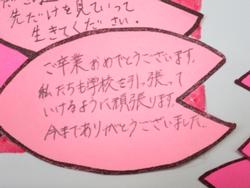 先だけを見ていって
生きてください。
ご卒業おめでとうございます。
私たちも学校を引っ張って
いけるように頑張ります。
今までありがとうございました。